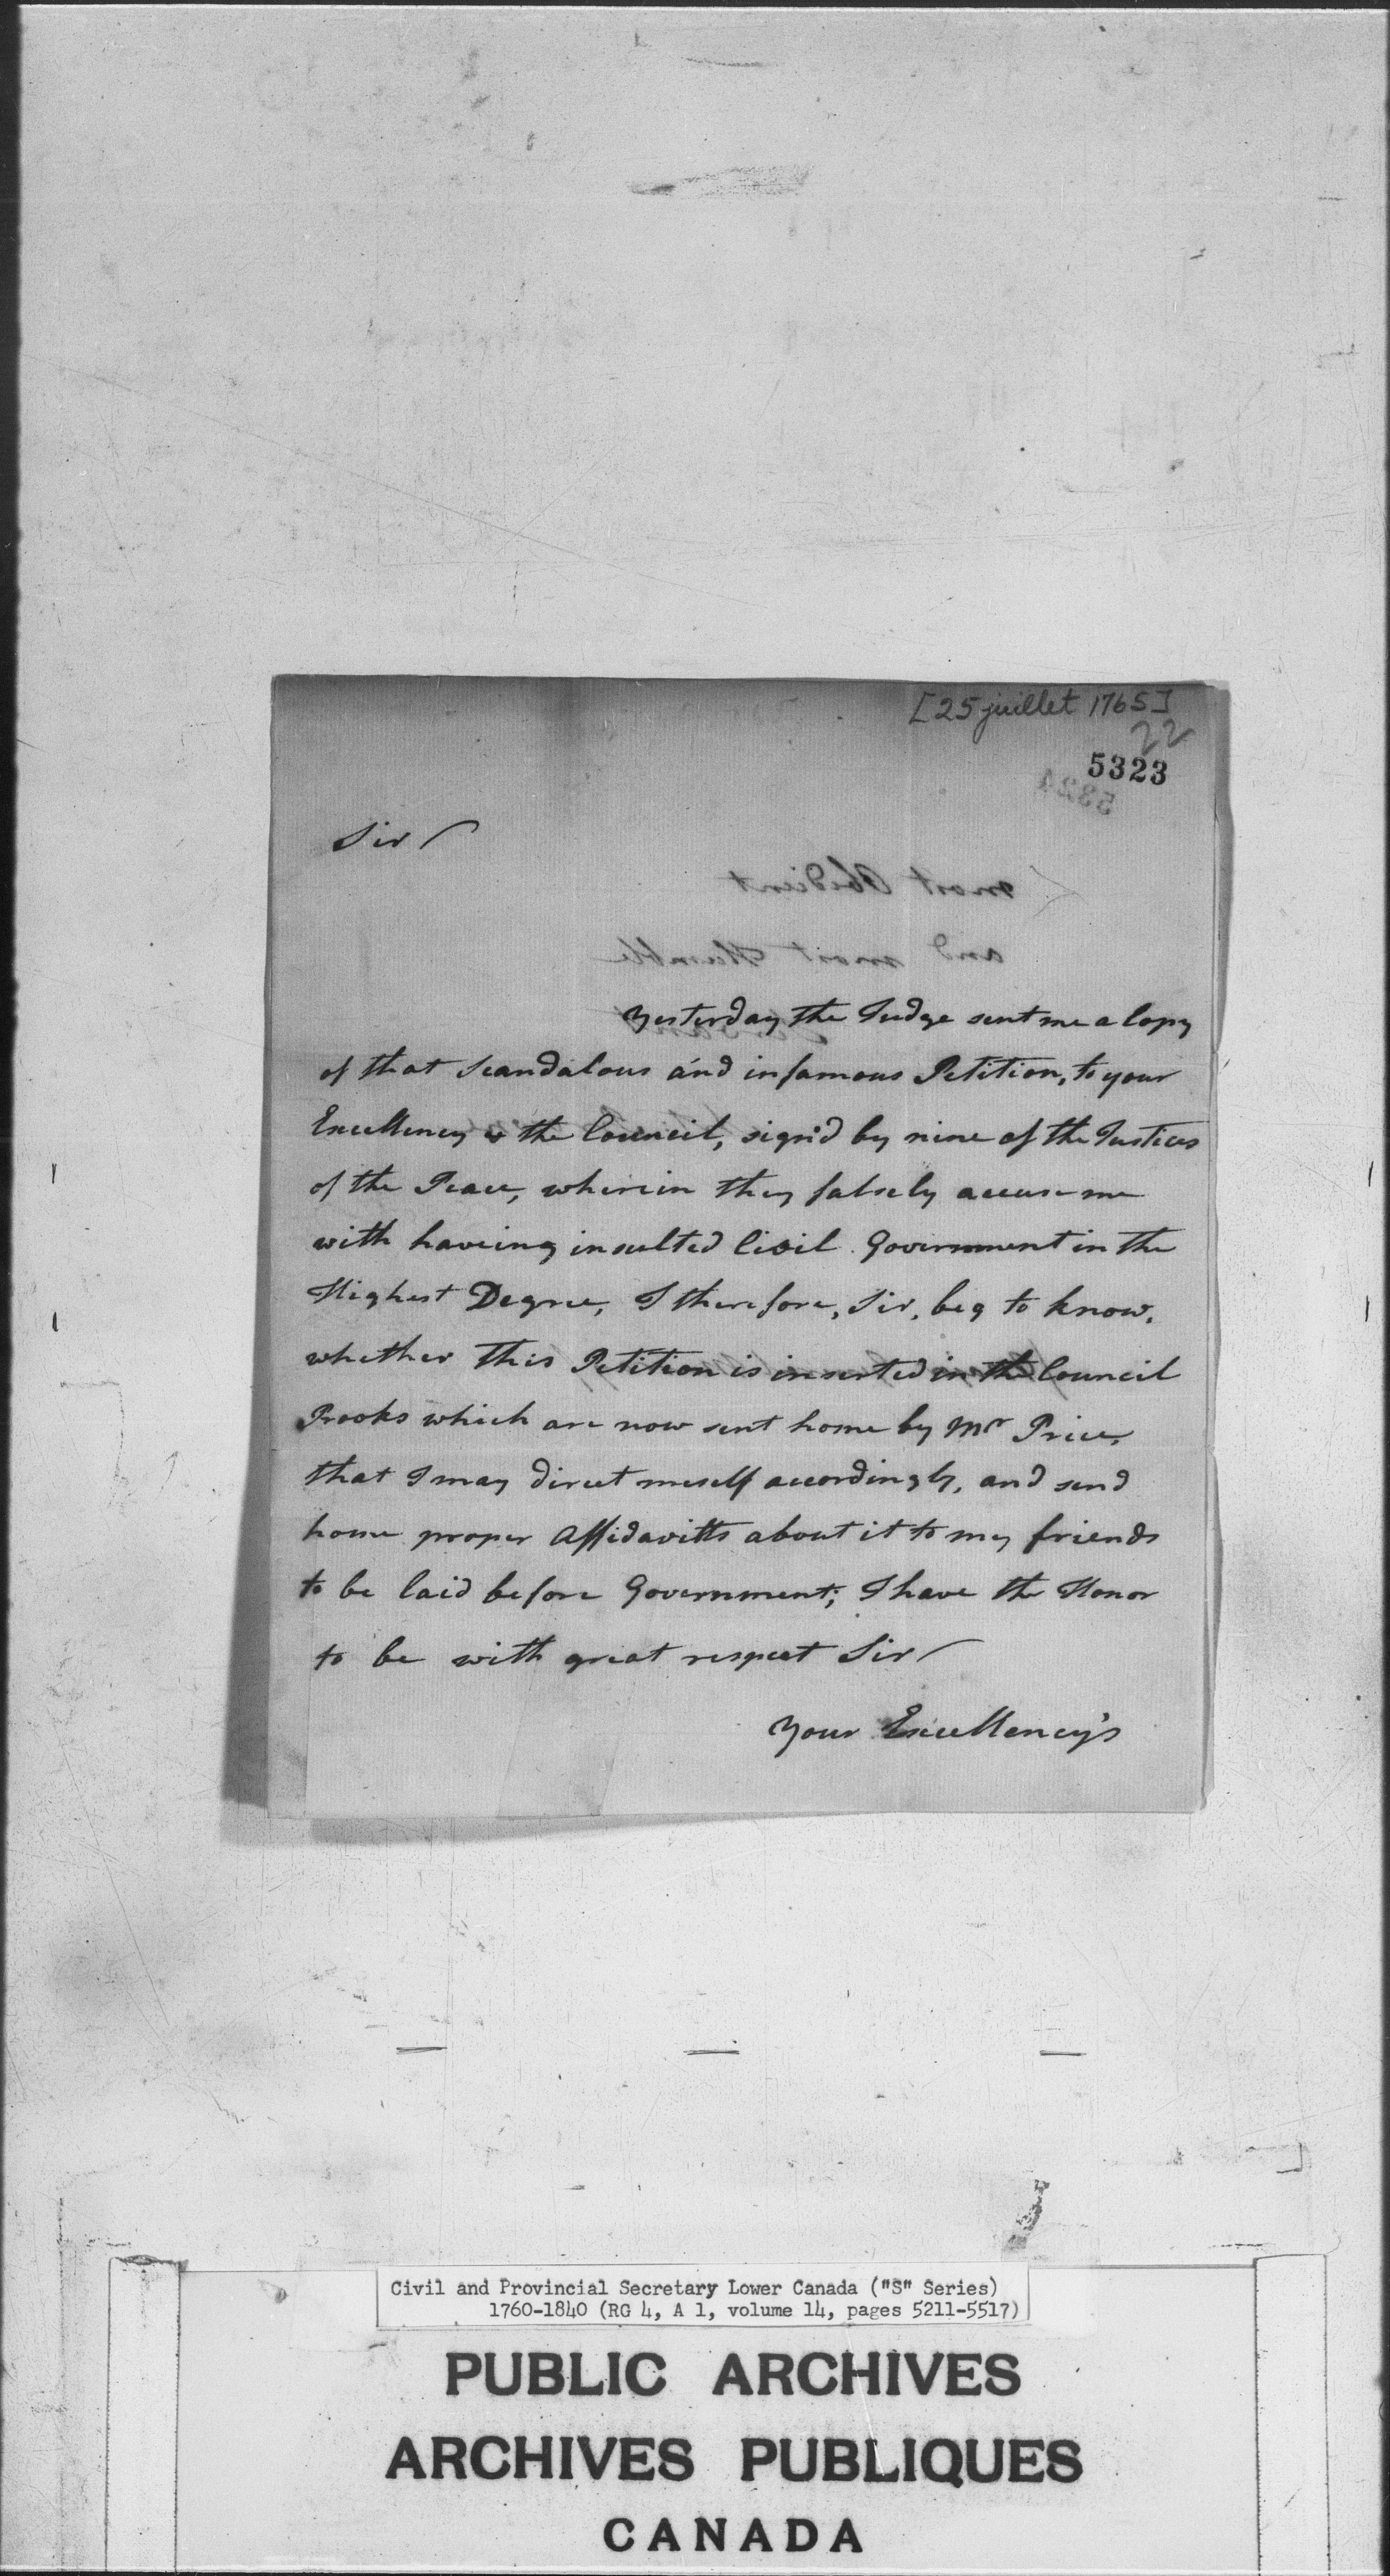 [25 juillet 1765]
22
5323
Sir
Yesterday the Judge sent me a Copy
of that Scandalous and infamous Petition, to your
Excellency & the Council, sign'd by nine of the Justices
of the Peace, wherein they falsely accuse me
with haveing insulted Civil Government in the
Highest Degree, I therefore, Sir, beg to know,
whether this Petition is inserted in the Council
Books which are now sent home by Mr Price,
that I may direct meself accordingly, and send
home proper Affidavitts about it to my friends
to be laid before Government; I have the Honor
to be with great respect Sir
Your Excellency's
Civil and Provincial Secretary Lower Canada ("S" Series)
1760-1840 (RG 4, A 1, volume 14, pages 5211-5517)
PUBLIC ARCHIVES
ARCHIVES PUBLIQUES
CANADA